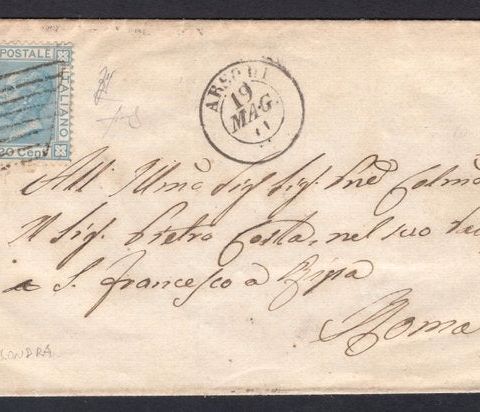 POSTALE
ITALIANO
20 Cent
ARSOLI
19
MAG.
All' Illmo Sig. Sig. Pne Colmo
Il Sig. Pietro Costa, nel suo
a S. Francesco a Ripa
Roma
LONDRA